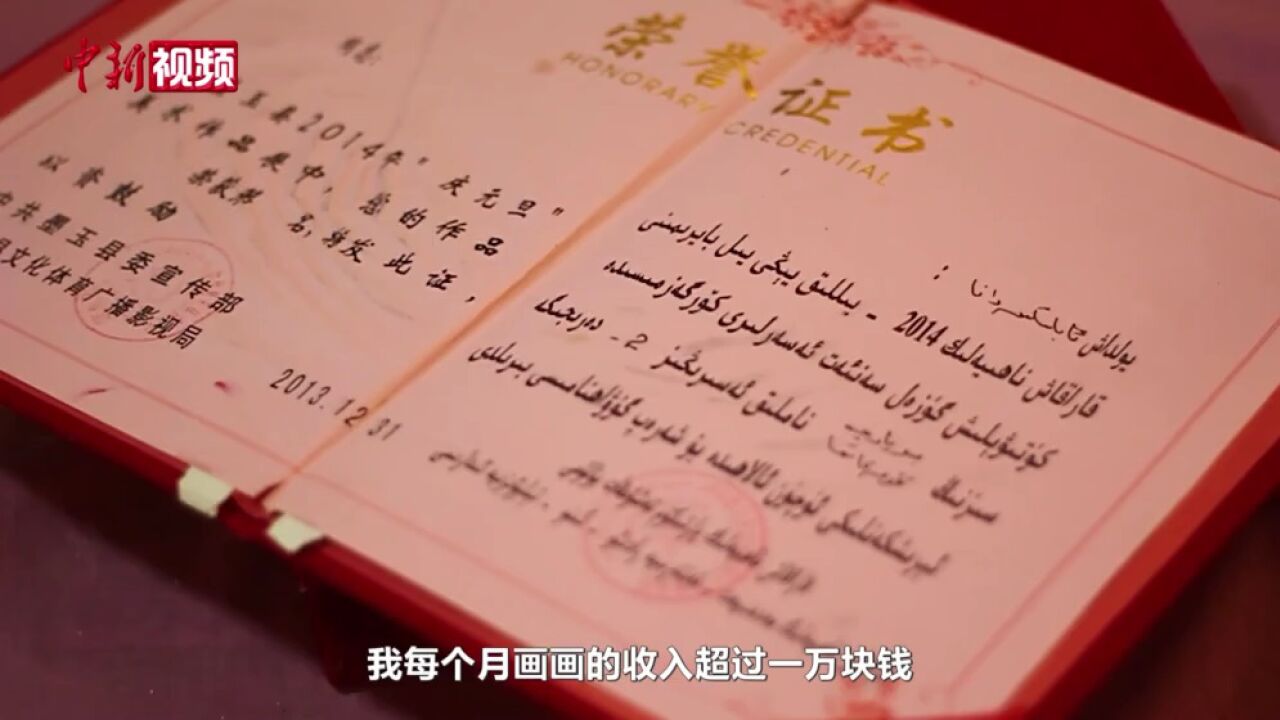 中新视频
荣誉证书
HONORARY CREDENTIAL
2014年"庆元旦"
美术作品展中，您的作品
荣获第 名，特发此证，
以资鼓励
中共墨玉县委宣传部
县文化体育广播影视局
2013.12.31
يولداش
قاراقاش ناھىيەلىك 2014 - يىللىق يېڭى يىل بايرىمىنى
كۈتۈۋېلىش گۈزەل سەنئەت ئەسەرلىرى كۆرگەزمىسىدە
سىزنىڭ ناملىق ئەسىرىڭىز 2 - دەرىجىگە
ئېرىشكەنلىكى ئۈچۈن ئالاھىدە بۇ شەرەپ گۇۋاھنامىسى بېرىلدى
我每个月画画的收入超过一万块钱